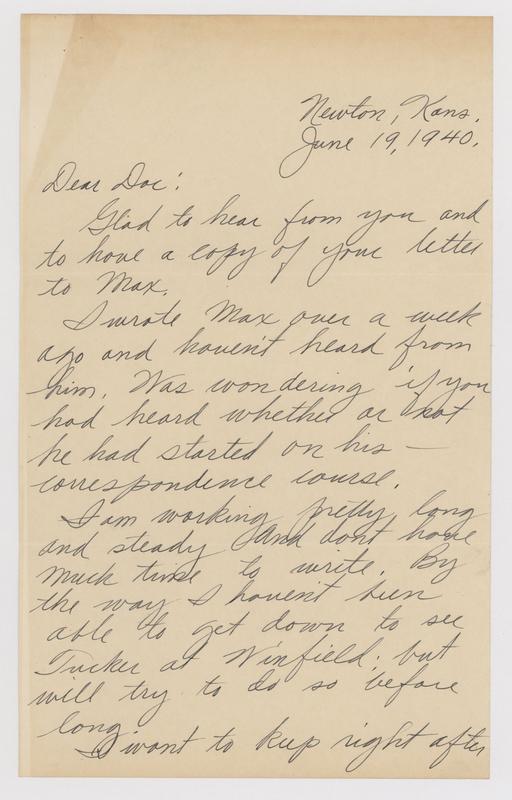 Newton, Kans.
June 19, 1940.
Dear Doc:
Glad to hear from you and
to have a copy of your letter
to Max.
I wrote Max over a week
ago and haven't heard from
him. Was wondering if you
had heard whether or not
he had started on his —
correspondence course.
I am working pretty long
and steady and don't have
much time to write. By
the way I haven't been
able to get down to see
Tucker at Winfield; but
will try to do so before
long.
I want to keep right after